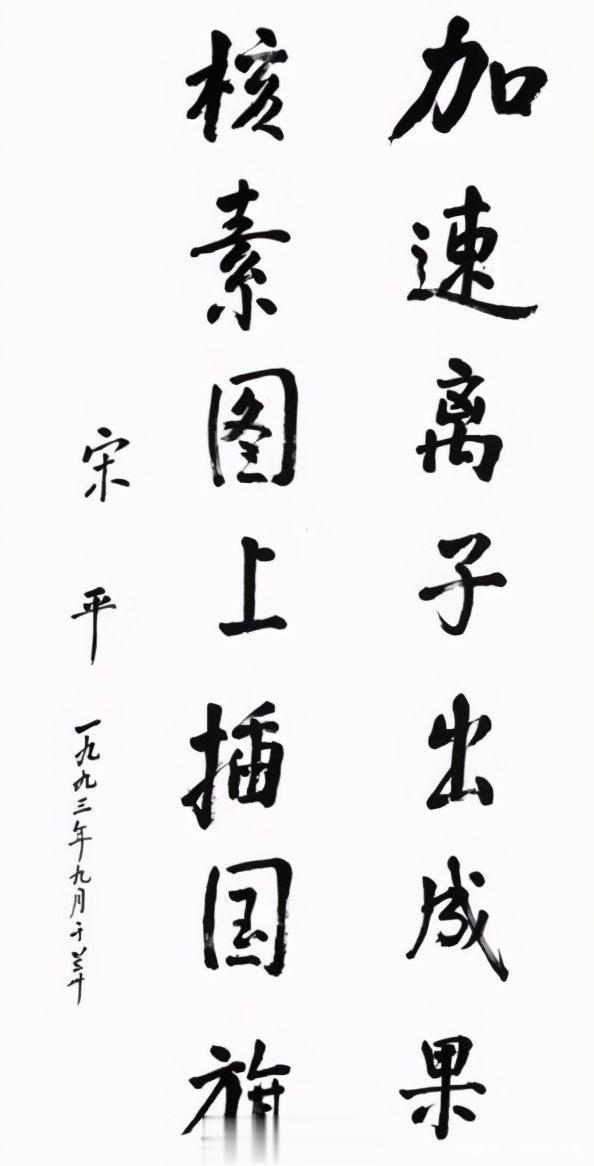 加速离子出成果
核素图上插国旗
宋平
一九九三年九月于兰州